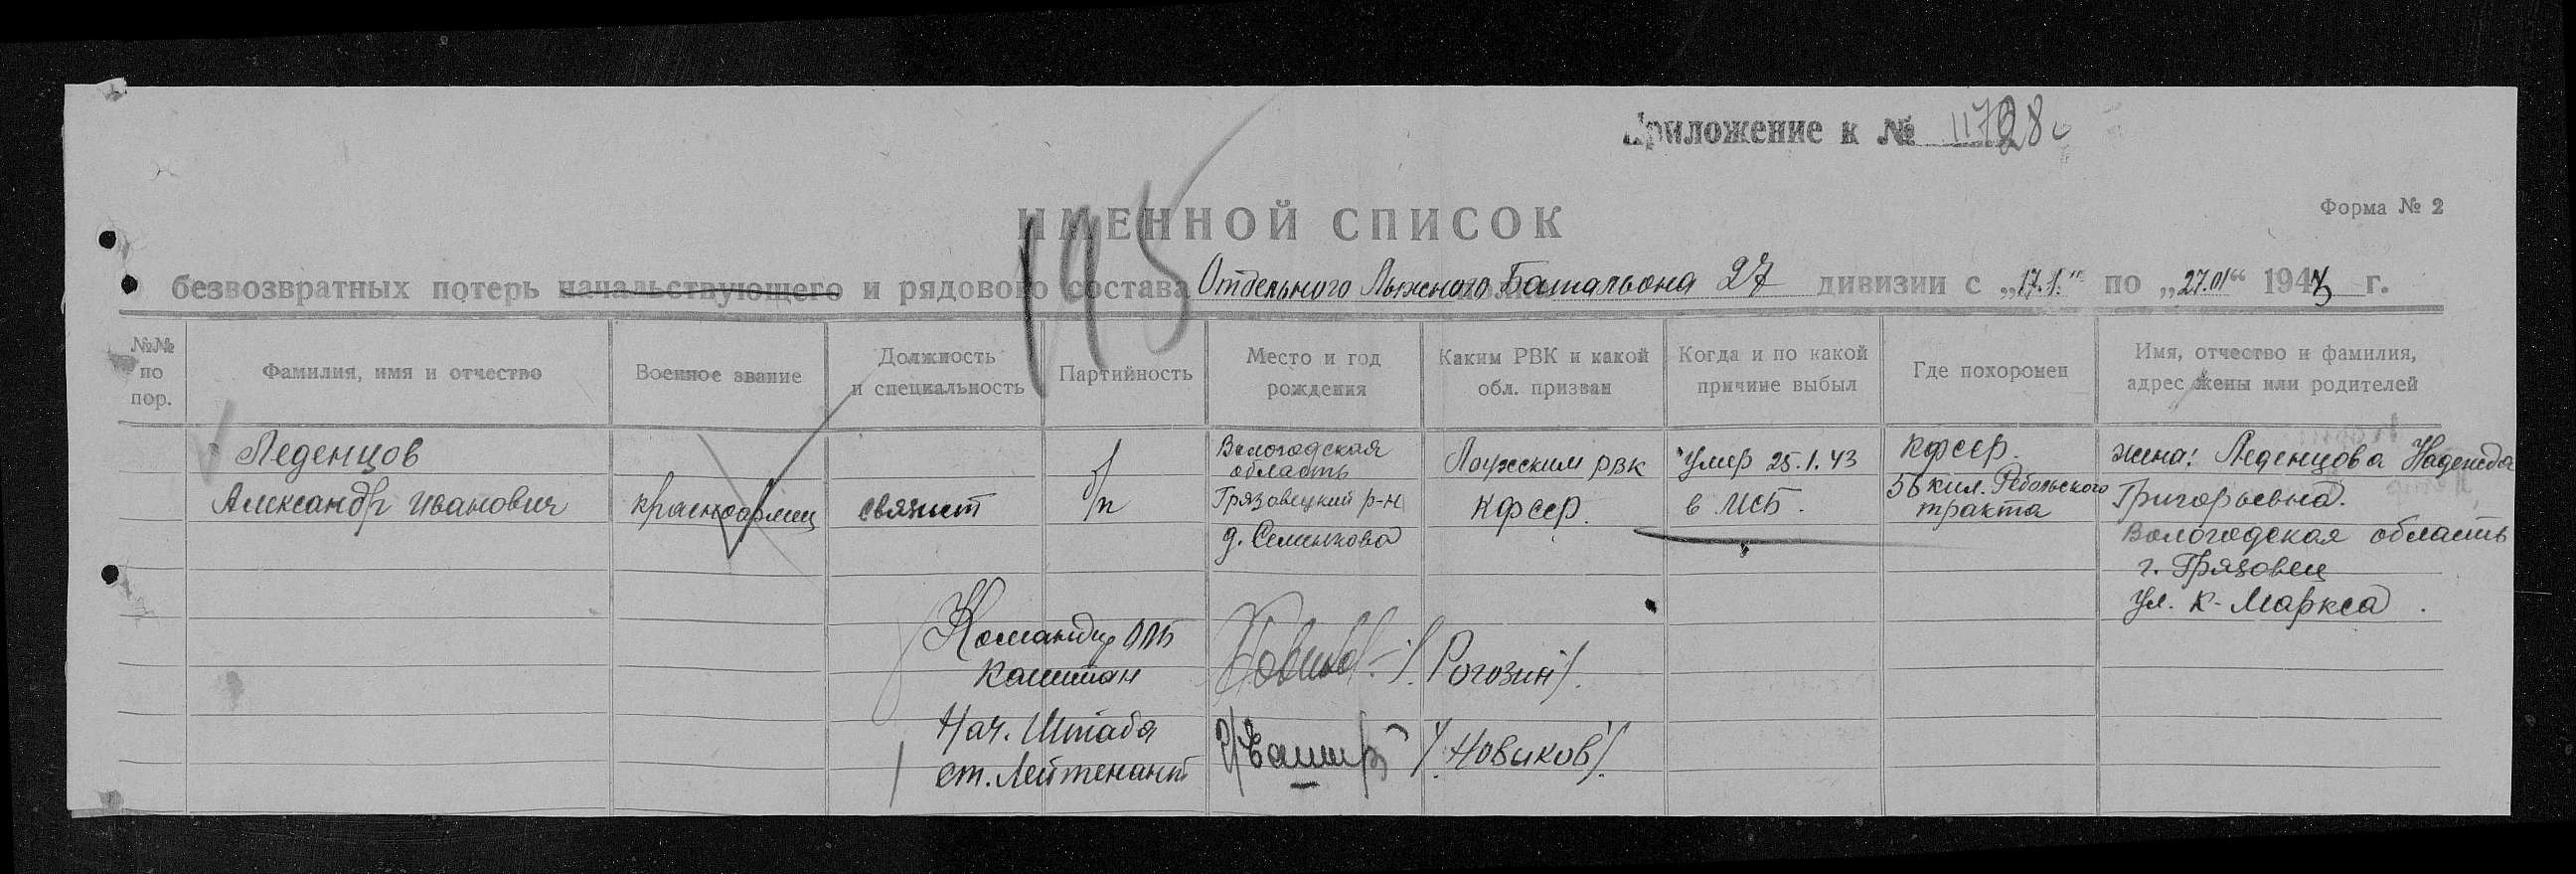 Приложение к № 11728с
195
Форма № 2
ИМЕННОЙ СПИСОК
безвозвратных потерь начальствующего и рядового состава Отдельного Лыжного Батальона 27 дивизии с „17.1.“ по „27.01“ 1943 г.
№№ по пор.
Фамилия, имя и отчество
Военное звание
Должность и специальность
Партийность
Место и год рождения
Каким РВК и какой обл. призван
Когда и по какой причине выбыл
Где похоронен
Имя, отчество и фамилия, адрес жены или родителей
Леденцов
Александр Иванович
красноармеец
связист
б/п
Вологодская
область
Грязовецкий р-н
д. Семенкова
Лоухским РВК
КФССР.
Умер 25.1.43
в МСБ.
КФССР.
56 кил. Ребольского
тракта
жена: Леденцова Надежда
Григорьевна.
Вологодская область
г. Грязовец
ул. К-Маркса.
Командир ОЛБ
Капитан
/Рогозин/.
Нач. Штаба
ст. Лейтенант
/Новиков/.